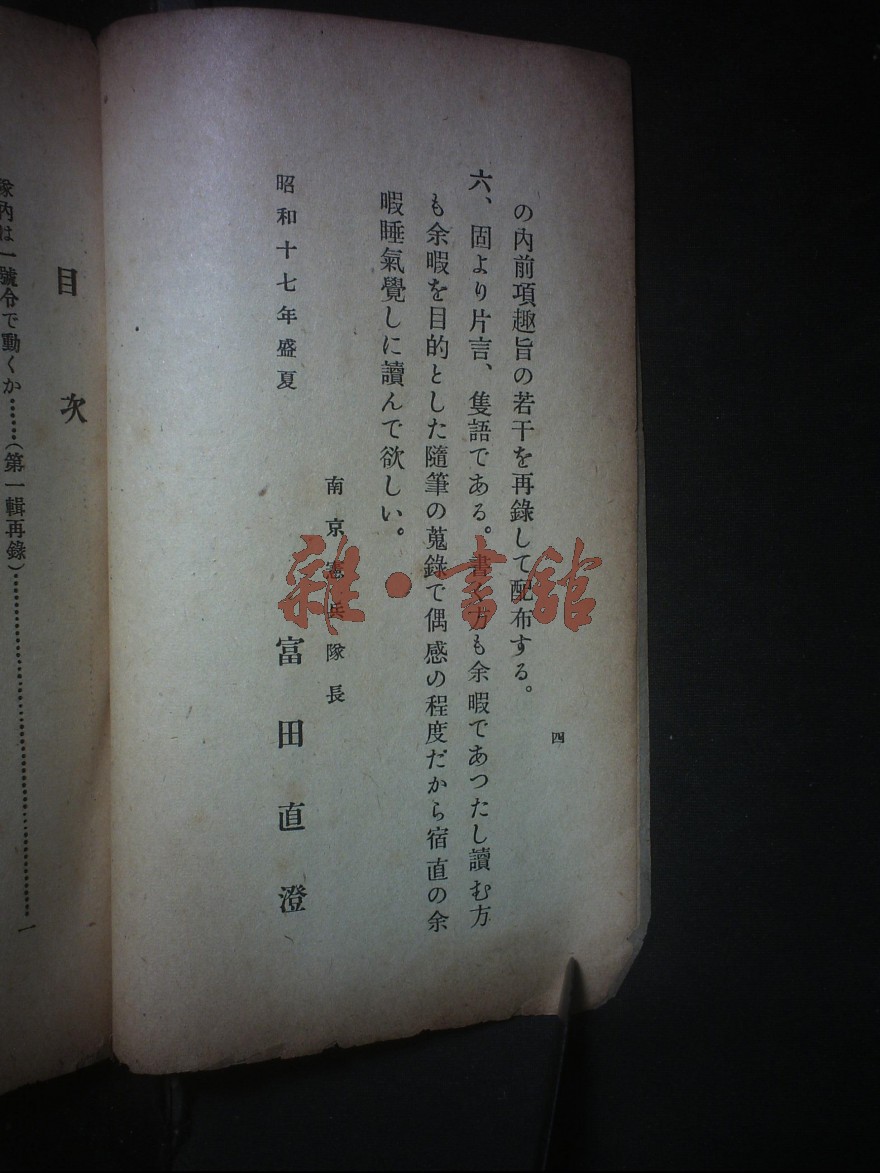 四
の內前項趣旨の若干を再錄して配布する。
六、固より片言、隻語である。書く方も余暇であつたし讀む方
も余暇を目的とした隨筆の蒐錄で偶感の程度だから宿直の余
暇睡氣覺しに讀んで欲しい。
南京憲兵隊長
富田直澄
昭和十七年盛夏
目次
隊內は一號令で動くか……(第一輯再錄)…………………………一
雜·書館